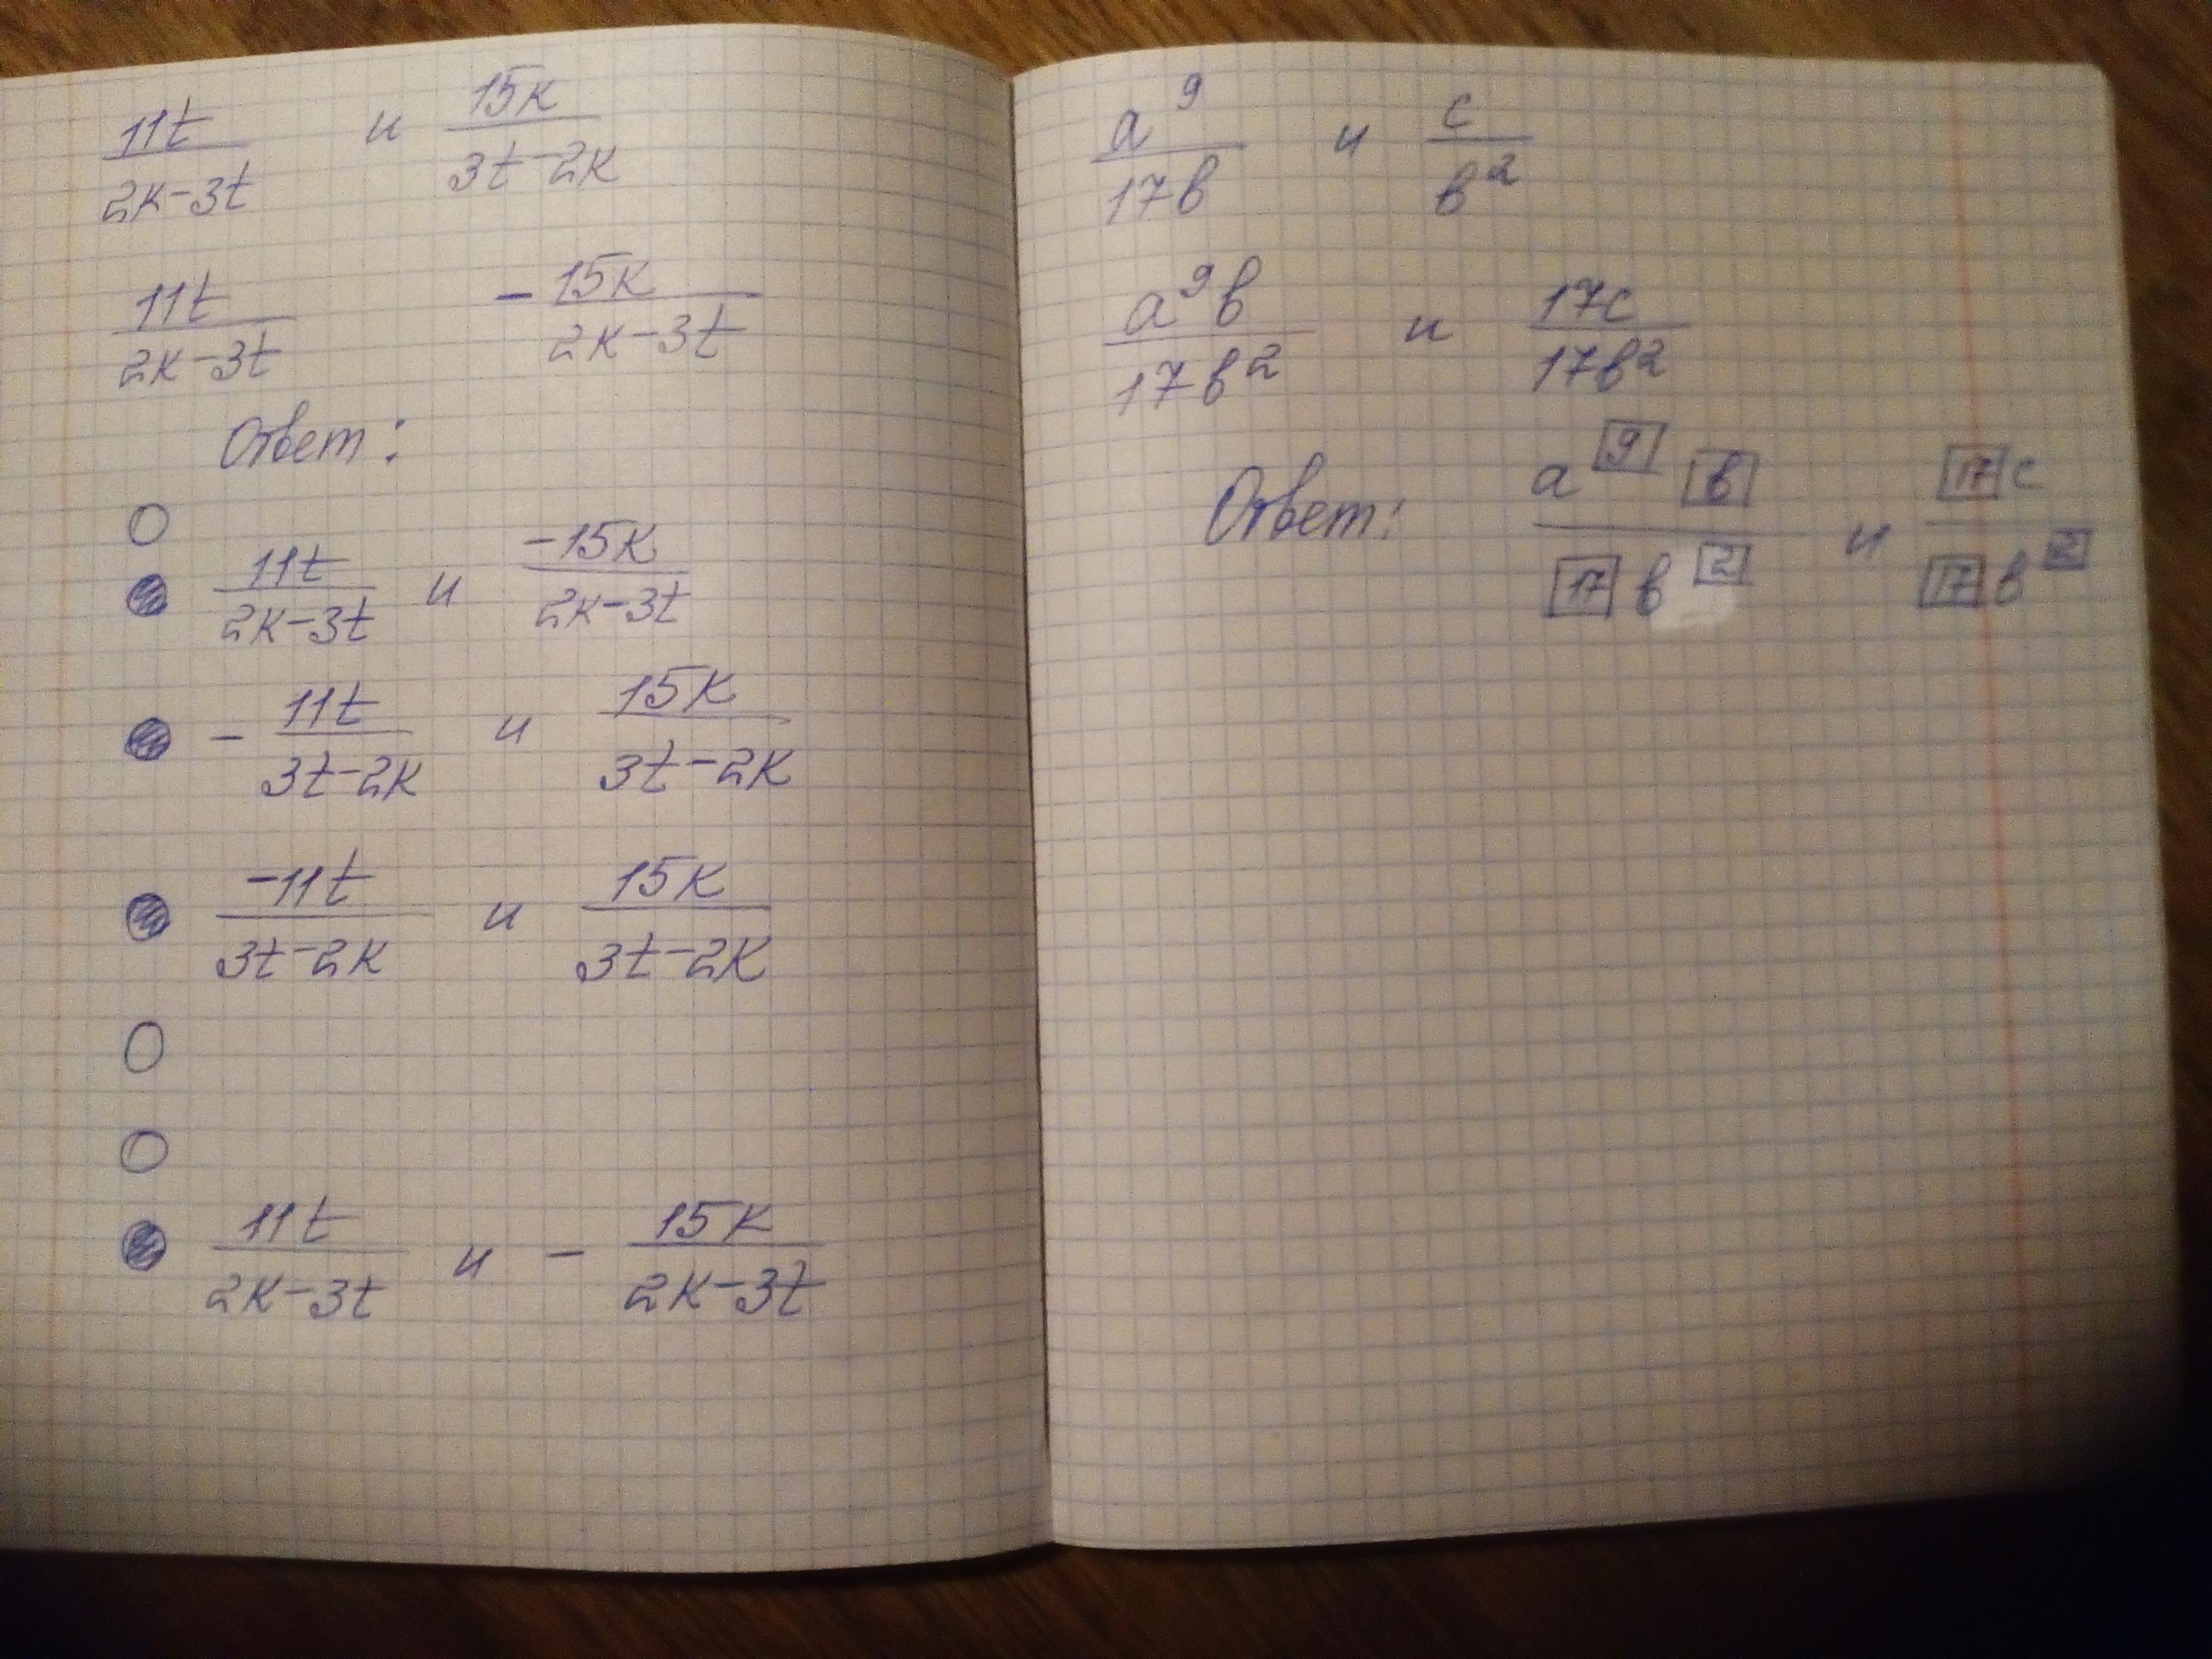 11t/(2к-3t) и 15к/(3t-2к)
11t/(2к-3t) -15к/(2к-3t)
Ответ:
11t/(2к-3t) и (-15к)/(2к-3t)
-11t/(3t-2к) и 15к/(3t-2к)
(-11t)/(3t-2к) и 15к/(3t-2к)
11t/(2к-3t) и -15к/(2к-3t)
a⁹/17в и c/в²
a⁹в/17в² и 17c/17в²
Ответ: a⁹в/17в² и 17c/17в²